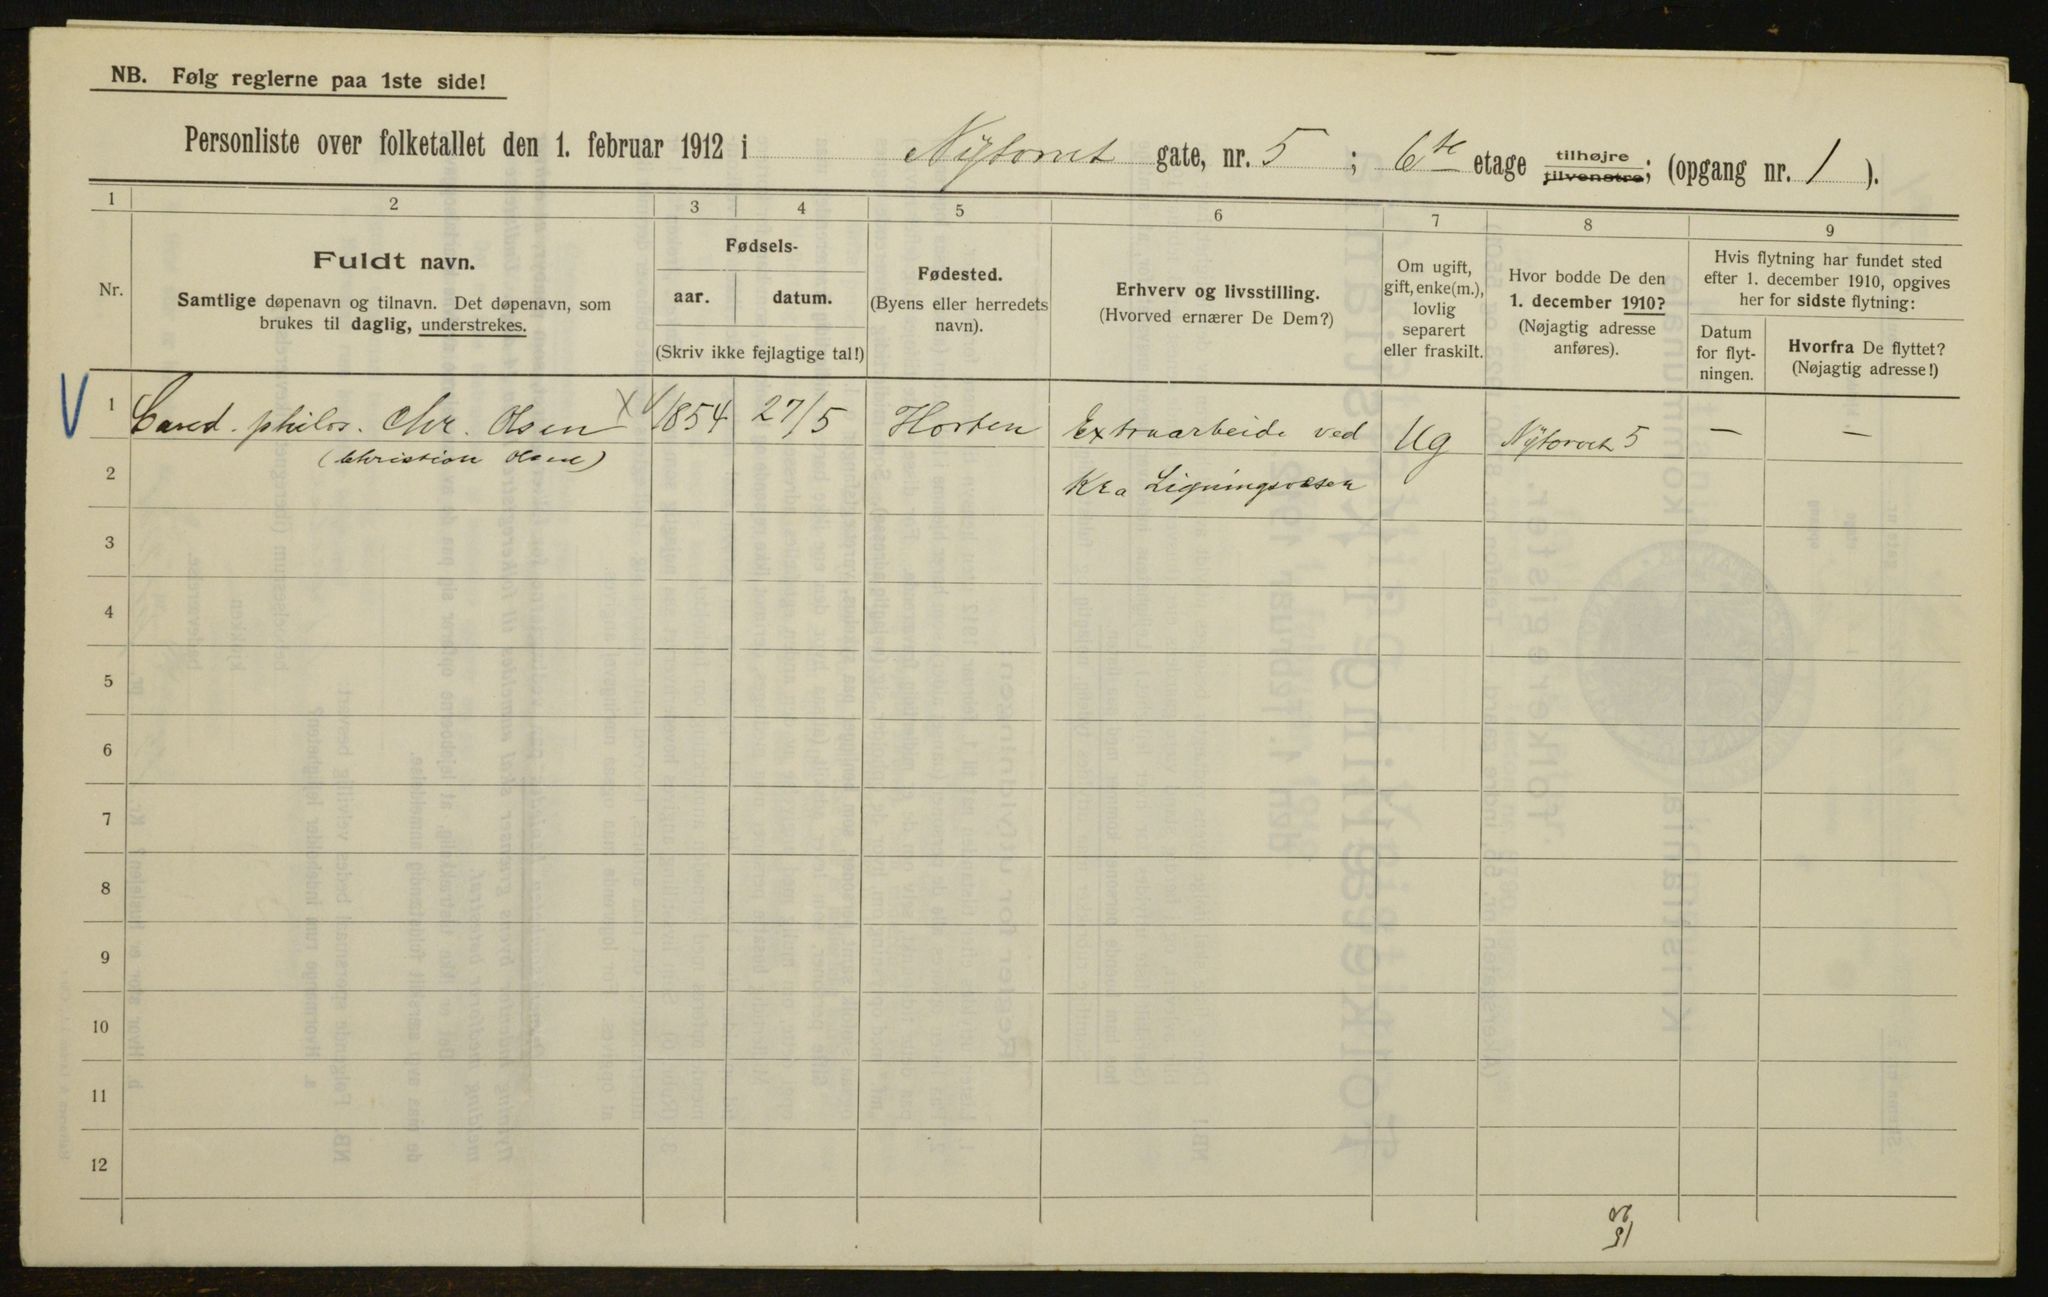 NB. Følg reglerne paa 1ste side!
Personliste over folketallet den 1. februar 1912 i Nytorvet gate, nr. 5 ; 6te etage tilhøjre tilvenstre; (opgang nr. 1 ).
1 2 3 4 5 6 7 8 9
Nr.
Fuldt navn.
Samtlige døpenavn og tilnavn. Det døpenavn, som
brukes til daglig, understrekes.
Fødsels-
aar. datum.
(Skriv ikke fejlagtige tal!)
Fødested.
(Byens eller herredets
navn).
Erhverv og livsstilling.
(Hvorved ernærer De Dem?)
Om ugift,
gift, enke(m.),
lovlig
separert
eller fraskilt.
Hvor bodde De den
1. december 1910?
(Nøjagtig adresse
anføres).
Hvis flytning har fundet sted
efter 1. december 1910, opgives
her for sidste flytning:
Datum
for flyt-
ningen.
Hvorfra De flyttet?
(Nøjagtig adresse!)
V 1 Cand. philos. Chr. Olsen X 1854 27/5 Horten Extraarbeide ved Ug Nytorvet 5 — —
(Christian Olsen)
2 Kra Ligningsvæsen
3
4
5
6
7
8
9
10
11
12